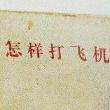 怎样打飞机